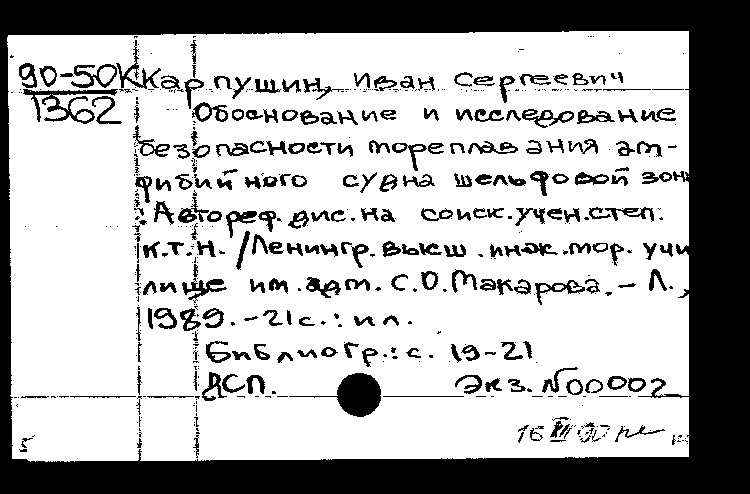 90-50К Карпушин, Иван Сергеевич
1362 Обоснование и исследование
безопасности мореплавания ам-
фибийного судна шельфовой зоны
: Автореф. дис. на соиск. учен. степ.
к.т.н. / Ленингр. высш. инж. мор. учи
лище им. адм. С.О. Макарова. - Л.,
1989. - 21 с. : ил.
Библиогр.: с. 19-21
ДСП. Экз. №00002
16 XII 90
5